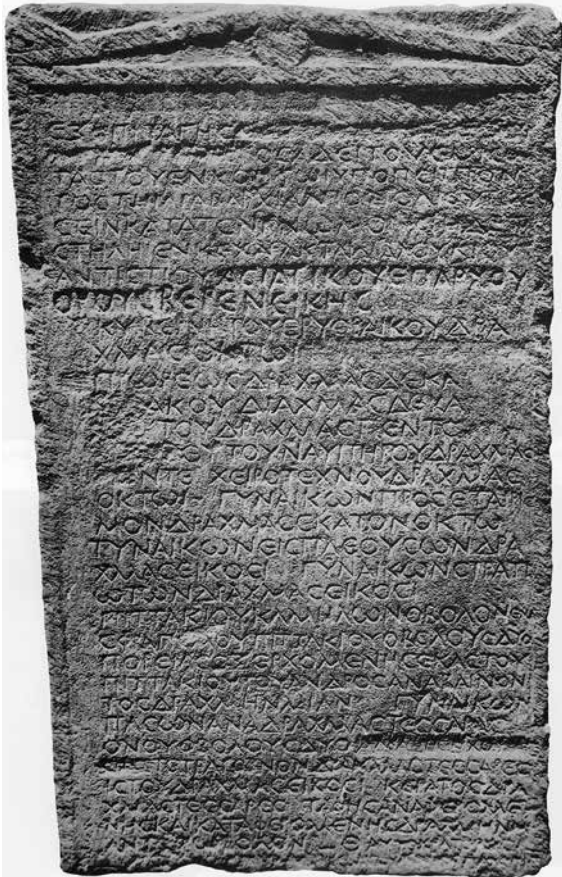 ΕΞ ΕΠΙΤΑΓΗΣ
ΟΣΑ ΔΕΙ ΤΟΥΣ ΜΙΣΘΩ
ΤΑΣ ΤΟΥ ΕΝ ΚΟΠΤΩΙ ΥΠΟΠΕΙΠΤΟΝ
ΤΟΣ ΤΗΙ ΑΡΑΒΑΡΧΙΑΙ ΑΠΟΣΤΟΛΙΟΥ ΠΡΑΣ
ΣΕΙΝ ΚΑΤΑ ΤΟΝ ΓΝΩΜΟΝΑ ΤΗΔΕ ΤΗΙ
ΣΤΗΛΗΙ ΕΝΚΕΧΑΡΑΚΤΑΙ ΔΙΑ ΛΟΥΚΙΟΥ
ΑΝΤΙΣΤΙΟΥ ΑΣΙΑΤΙΚΟΥ ΕΠΑΡΧΟΥ
ΟΡΟΥΣ ΒΕΡΕΝΕΙΚΗΣ
ΚΥΒΕΡΝΗΤΟΥ ΕΡΥΘΡΑΙΚΟΥ ΔΡΑ
ΧΜΑΣ ΟΚΤΩΙ
ΠΡΩΡΕΩΣ ΔΡΑΧΜΑΣ ΔΕΚΑ
ΑΚΟΥ ΔΡΑΧΜΑΣ ΔΕΚΑ
ΤΟΥ ΔΡΑΧΜΑΣ ΠΕΝΤΕ
ΝΑΥΠΗΓΟΥ ΔΡΑΧΜΑΣ
ΠΕΝΤΕ ΧΕΙΡΟΤΕΧΝΟΥ ΔΡΑΧΜΑΣ
ΟΚΤΩΙ ΓΥΝΑΙΚΩΝ ΠΡΟΣ ΕΤΑΙΡΙΣ
ΜΟΝ ΔΡΑΧΜΑΣ ΕΚΑΤΟΝ ΟΚΤΩ
ΓΥΝΑΙΚΩΝ ΕΙΣΠΛΕΟΥΣΩΝ ΔΡΑ
ΧΜΑΣ ΕΙΚΟΣΙ ΓΥΝΑΙΚΩΝ ΣΤΡΑΤΙ
ΩΤΩΝ ΔΡΑΧΜΑΣ ΕΙΚΟΣΙ
ΠΙΤΤΑΚΙΟΥ ΚΑΜΗΛΩΝ ΟΒΟΛΟΝ ΕΝΑ
ΣΦΡΑΓΙΣΜΟΥ ΠΙΤΤΑΚΙΟΥ ΟΒΟΛΟΥΣ ΔΥΟ
ΠΟΡΕΙΑΣ ΕΞΕΡΧΟΜΕΝΗΣ ΕΚΑΣΤΟΥ
ΠΙΤΤΑΚΙΟΥ ΤΟΥ ΑΝΔΡΟΣ ΑΝΑΒΑΙΝΟΝ
ΤΟΣ ΔΡΑΧΜΗΝ ΜΙΑΝ ΓΥΝΑΙΚΩΝ
ΠΑΣΩΝ ΑΝΑ ΔΡΑΧΜΑΣ ΤΕΣΣΑΡΑΣ
ΟΝΟΥ ΟΒΟΛΟΥΣ ΔΥΟ ΑΜΑΞΗΣ ΕΧΟΥ
ΣΗΣ ΤΕΤΡΑΓΩΝΟΝ ΔΡΑΧΜΑΣ ΤΕΣΣΑΡΕΣ
ΙΣΤΟΥ ΔΡΑΧΜΑΣ ΕΙΚΟΣΙ ΚΕΡΑΤΟΣ ΔΡΑ
ΧΜΑΣ ΤΕΣΣΑΡΕΣ ΤΑΦΗΣ ΑΝΑΦΕΡΟΜΕ
ΝΗΣ ΚΑΙ ΚΑΤΑΦΕΡΟΜΕΝΗΣ ΔΡΑΧΜΗΝ ΜΙ
ΑΝ ΤΕΤΡΩΒΟΛΟΝ